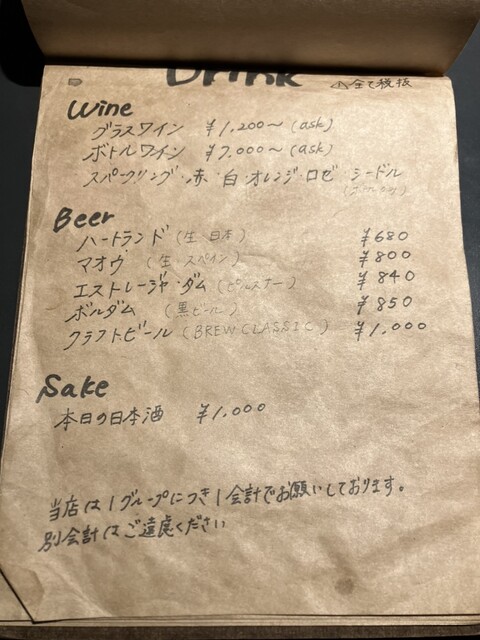 Drink ※全て税抜
Wine
グラスワイン ¥1,200〜 (ask)
ボトルワイン ¥7,000〜 (ask)
スパークリング・赤・白・オレンジ・ロゼ シードル
Beer
ハートランド (生 日本) ¥680
マオウ (生 スペイン) ¥800
エストレージャ・ダム (ピルスナー) ¥840
ボルダム (黒ビール) ¥850
クラフトビール (BREW CLASSIC) ¥1,000
Sake
本日の日本酒 ¥1,000
当店は1グループにつき1会計でお願いしております。
別会計はご遠慮ください